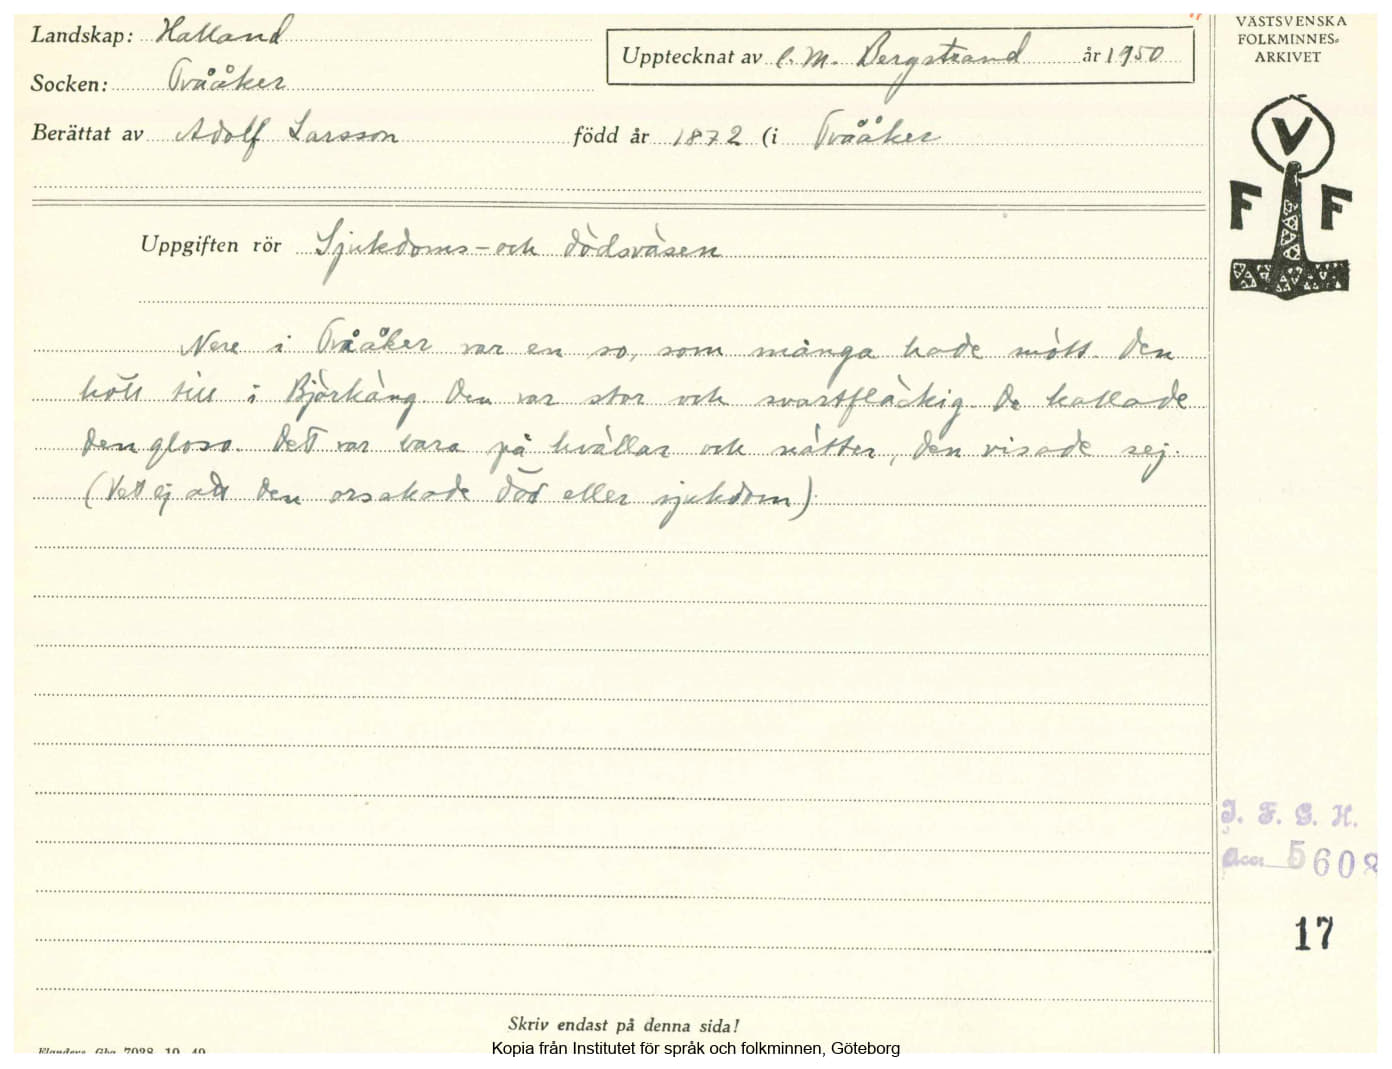 Landskap: Halland
Upptecknat av C. M. Bergstrand år 1950
VÄSTSVENSKA
FOLKMINNES-
ARKIVET
Socken: Tvååker
Berättat av Adolf Larsson född år 1872 (i Tvååker
V
F F
Uppgiften rör Sjukdoms- och dödsväsen
Nere i Tvååker var en so, som många hade mött. Den
höll till i Björkäng. Den var stor och svartfläckig. De kallade
den gloso. Det var bara på kvällar och nätter, den visade sej.
(Vet ej att den orsakade död eller sjukdom).
I. F. G. H.
Acc. 5608
17
Skriv endast på denna sida!
Elanders Gbg 7038 10 49
Kopia från Institutet för språk och folkminnen, Göteborg